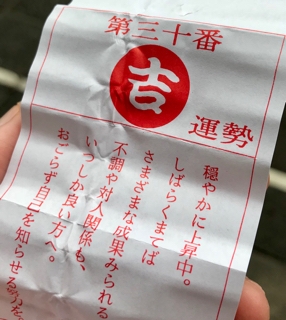 第三十番
吉
運勢
穏やかに上昇中。
しばらくまてば
さまざまな成果みられる
不調や対人関係も、
いつしか良い方へ。
おごらず自己を知らせる